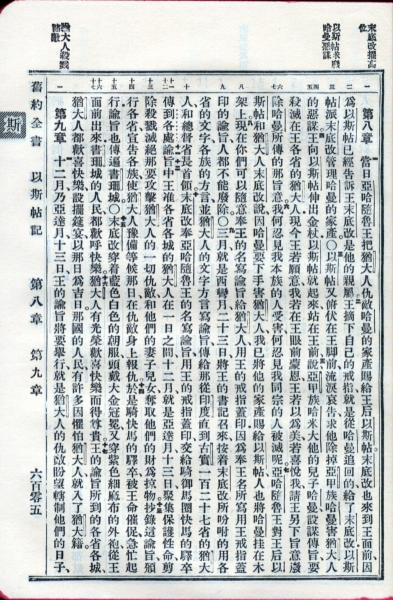 末底改擢高位
以斯帖求廢哈曼惡謀
猶大人殺戮諸敵
第八章 當日亞哈隨魯王把猶大人仇敵哈曼的家產賜給王后以斯帖末底改也來到王面前因
爲以斯帖已經告訴王末底改是他的親屬王摘下自己的戒指就是從哈曼追回的給了末底改以斯
帖派末底改管理哈曼的家產○以斯帖又俯伏在王脚前流淚哀告求他除掉亞甲族哈曼害猶大人
的惡謀王向以斯帖伸出金杖以斯帖就起來站在王前說亞甲族哈米大他的兒子哈曼設謀傳旨要
殺滅在王各省的猶大人現今王若願意我若在王眼前蒙恩王若以爲美若喜悅我請王另下旨意廢
除哈曼所傳的那旨意我何忍見我本族的人受害何忍見我同宗的人被滅呢亞哈隨魯王對王后以
斯帖和猶大人末底改說因哈曼要下手害猶大人我已將他的家產賜給以斯帖人也將哈曼挂在木
架上現在你們可以隨意奉王的名寫諭旨給猶大人用王的戒指蓋印因爲奉王名所寫用王戒指蓋
印的諭旨人都不能廢除○三月就是西彎月二十三日將王的書記召來按着末底改所吩咐的用各
省的文字各族的方言並猶大人的文字方言寫諭旨傳給那從印度直到古實一百二十七省的猶大
人和總督省長首領末底改奉亞哈隨魯王的名寫諭旨用王的戒指蓋印交給騎御馬圈快馬的驛卒
傳到各處諭旨中王准各省各城的猶大人在一日之間十二月就是亞達月十三日聚集保護性命剪
除殺戮滅絕那要攻擊猶大人的一切仇敵和他們的妻子兒女奪取他們的財爲掠物抄錄這諭旨頒
行各省宣告各族使猶大人豫備等候那日在仇敵身上報仇於是騎快馬的驛卒被王命催促急忙起
行諭旨也傳遍書珊城○末底改穿着藍色白色的朝服頭戴大金冠冕又穿紫色細麻布的外袍從王
面前出來書珊城的人民都歡呼快樂猶大人有光榮歡喜快樂而得尊貴王的諭旨所到的各省各城
猶大人都歡喜快樂設擺筵宴以那日爲吉日那國的人民有許多因懼怕猶大人就入了猶大籍
第九章 十二月乃亞達月十三日王的諭旨將要舉行就是猶大人的仇敵盼望轄制他們的日子
舊約全書 以斯帖記 第八章 第九章 六百零五
斯